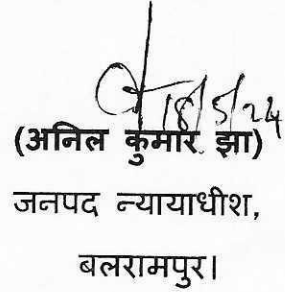 18/5/24
(अनिल कुमार झा)
जनपद न्यायाधीश,
बलरामपुर।